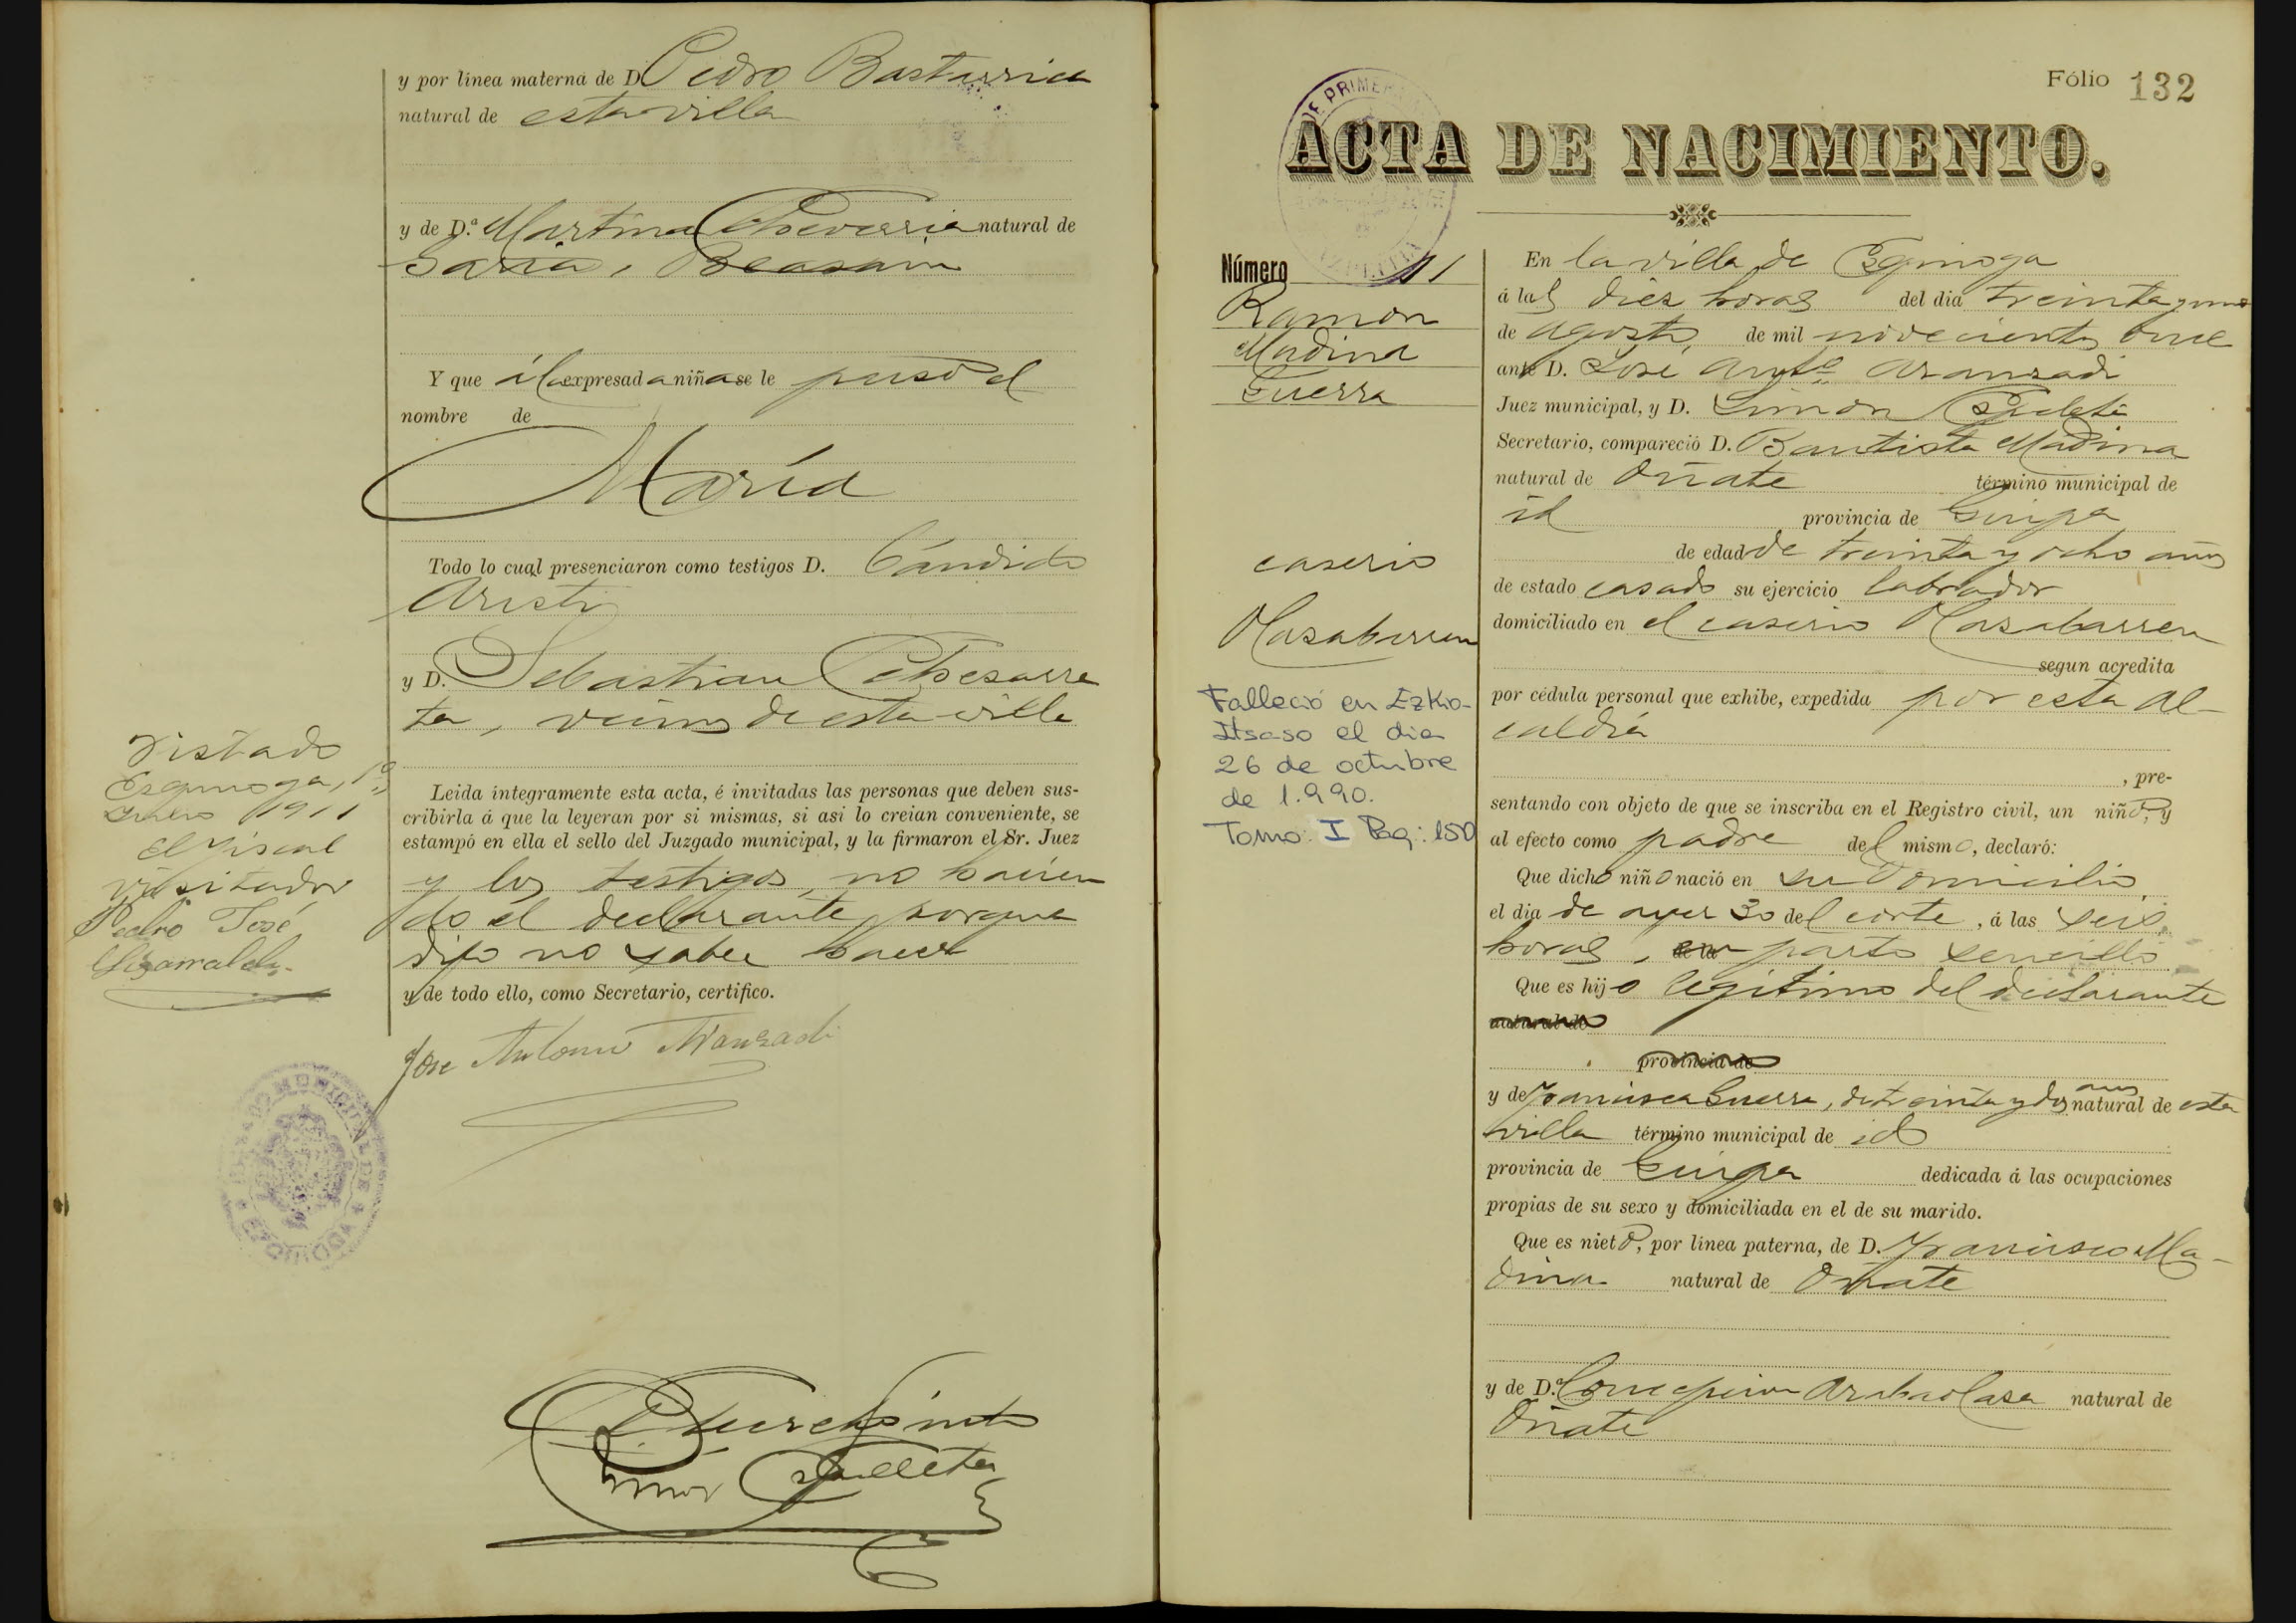 y por línea materna de D. Pedro Bastarrica
natural de esta villa
y de D.ª Martina Echeverria natural de
Beasain
Y que á la expresada niña se le puso el
nombre de
María
Todo lo cual presenciaron como testigos D. Cándido
Aristi
y D. Sebastian Echesarre
ta, vecinos de esta villa
Leida íntegramente esta acta, é invitadas las personas que deben sus-
cribirla á que la leyeran por si mismas, si asi lo creian conveniente, se
estampó en ella el sello del Juzgado municipal, y la firmaron el Sr. Juez
y los testigos, no hacien
do el declarante porque
dijo no saber hacer
y de todo ello, como Secretario, certifico.
Jose Antonio Aranzadi
Visitado
Ezquioga, 1º
Enero 1911
El Fiscal
visitador
Pedro José
Lizarralde
Fólio 132
DE PRIME
ACTA DE NACIMIENTO.
Número 11
Ramon
Madina
Guerra
caserio
Olazabarren
Falleció en Ezkio-
Itsaso el dia
26 de octubre
de 1.990.
Tomo: I Pag.: 150
En la villa de Ezquioga
á las diez horas del dia treinta y uno
de agosto, de mil novecientos once
ante D. José Antº Aranzadi
Juez municipal, y D. Simon Eguileta
Secretario, compareció D. Bautista Madina
natural de Oñate término municipal de
id provincia de Guipa
de edad de treinta y ocho años
de estado casado su ejercicio labrador
domiciliado en el caserio Olazabarren
segun acredita
por cédula personal que exhibe, expedida por esta Al-
caldía
, pre-
sentando con objeto de que se inscriba en el Registro civil, un niño, y
al efecto como padre del mismo, declaró:
Que dicho niño nació en su domicilio,
el dia de ayer 30 del corte, á las seis
horas, de la parto sencillo
Que es hijo legitimo del declarante
natural de
provincia de
y de Francisca Guerra, de treinta y dos años natural de esta
villa término municipal de id
provincia de Guipa dedicada á las ocupaciones
propias de su sexo y domiciliada en el de su marido.
Que es nieto, por línea paterna, de D. Francisco Ma-
dina natural de Oñate
y de D.ª Concepcion Arabaolasa natural de
Oñate